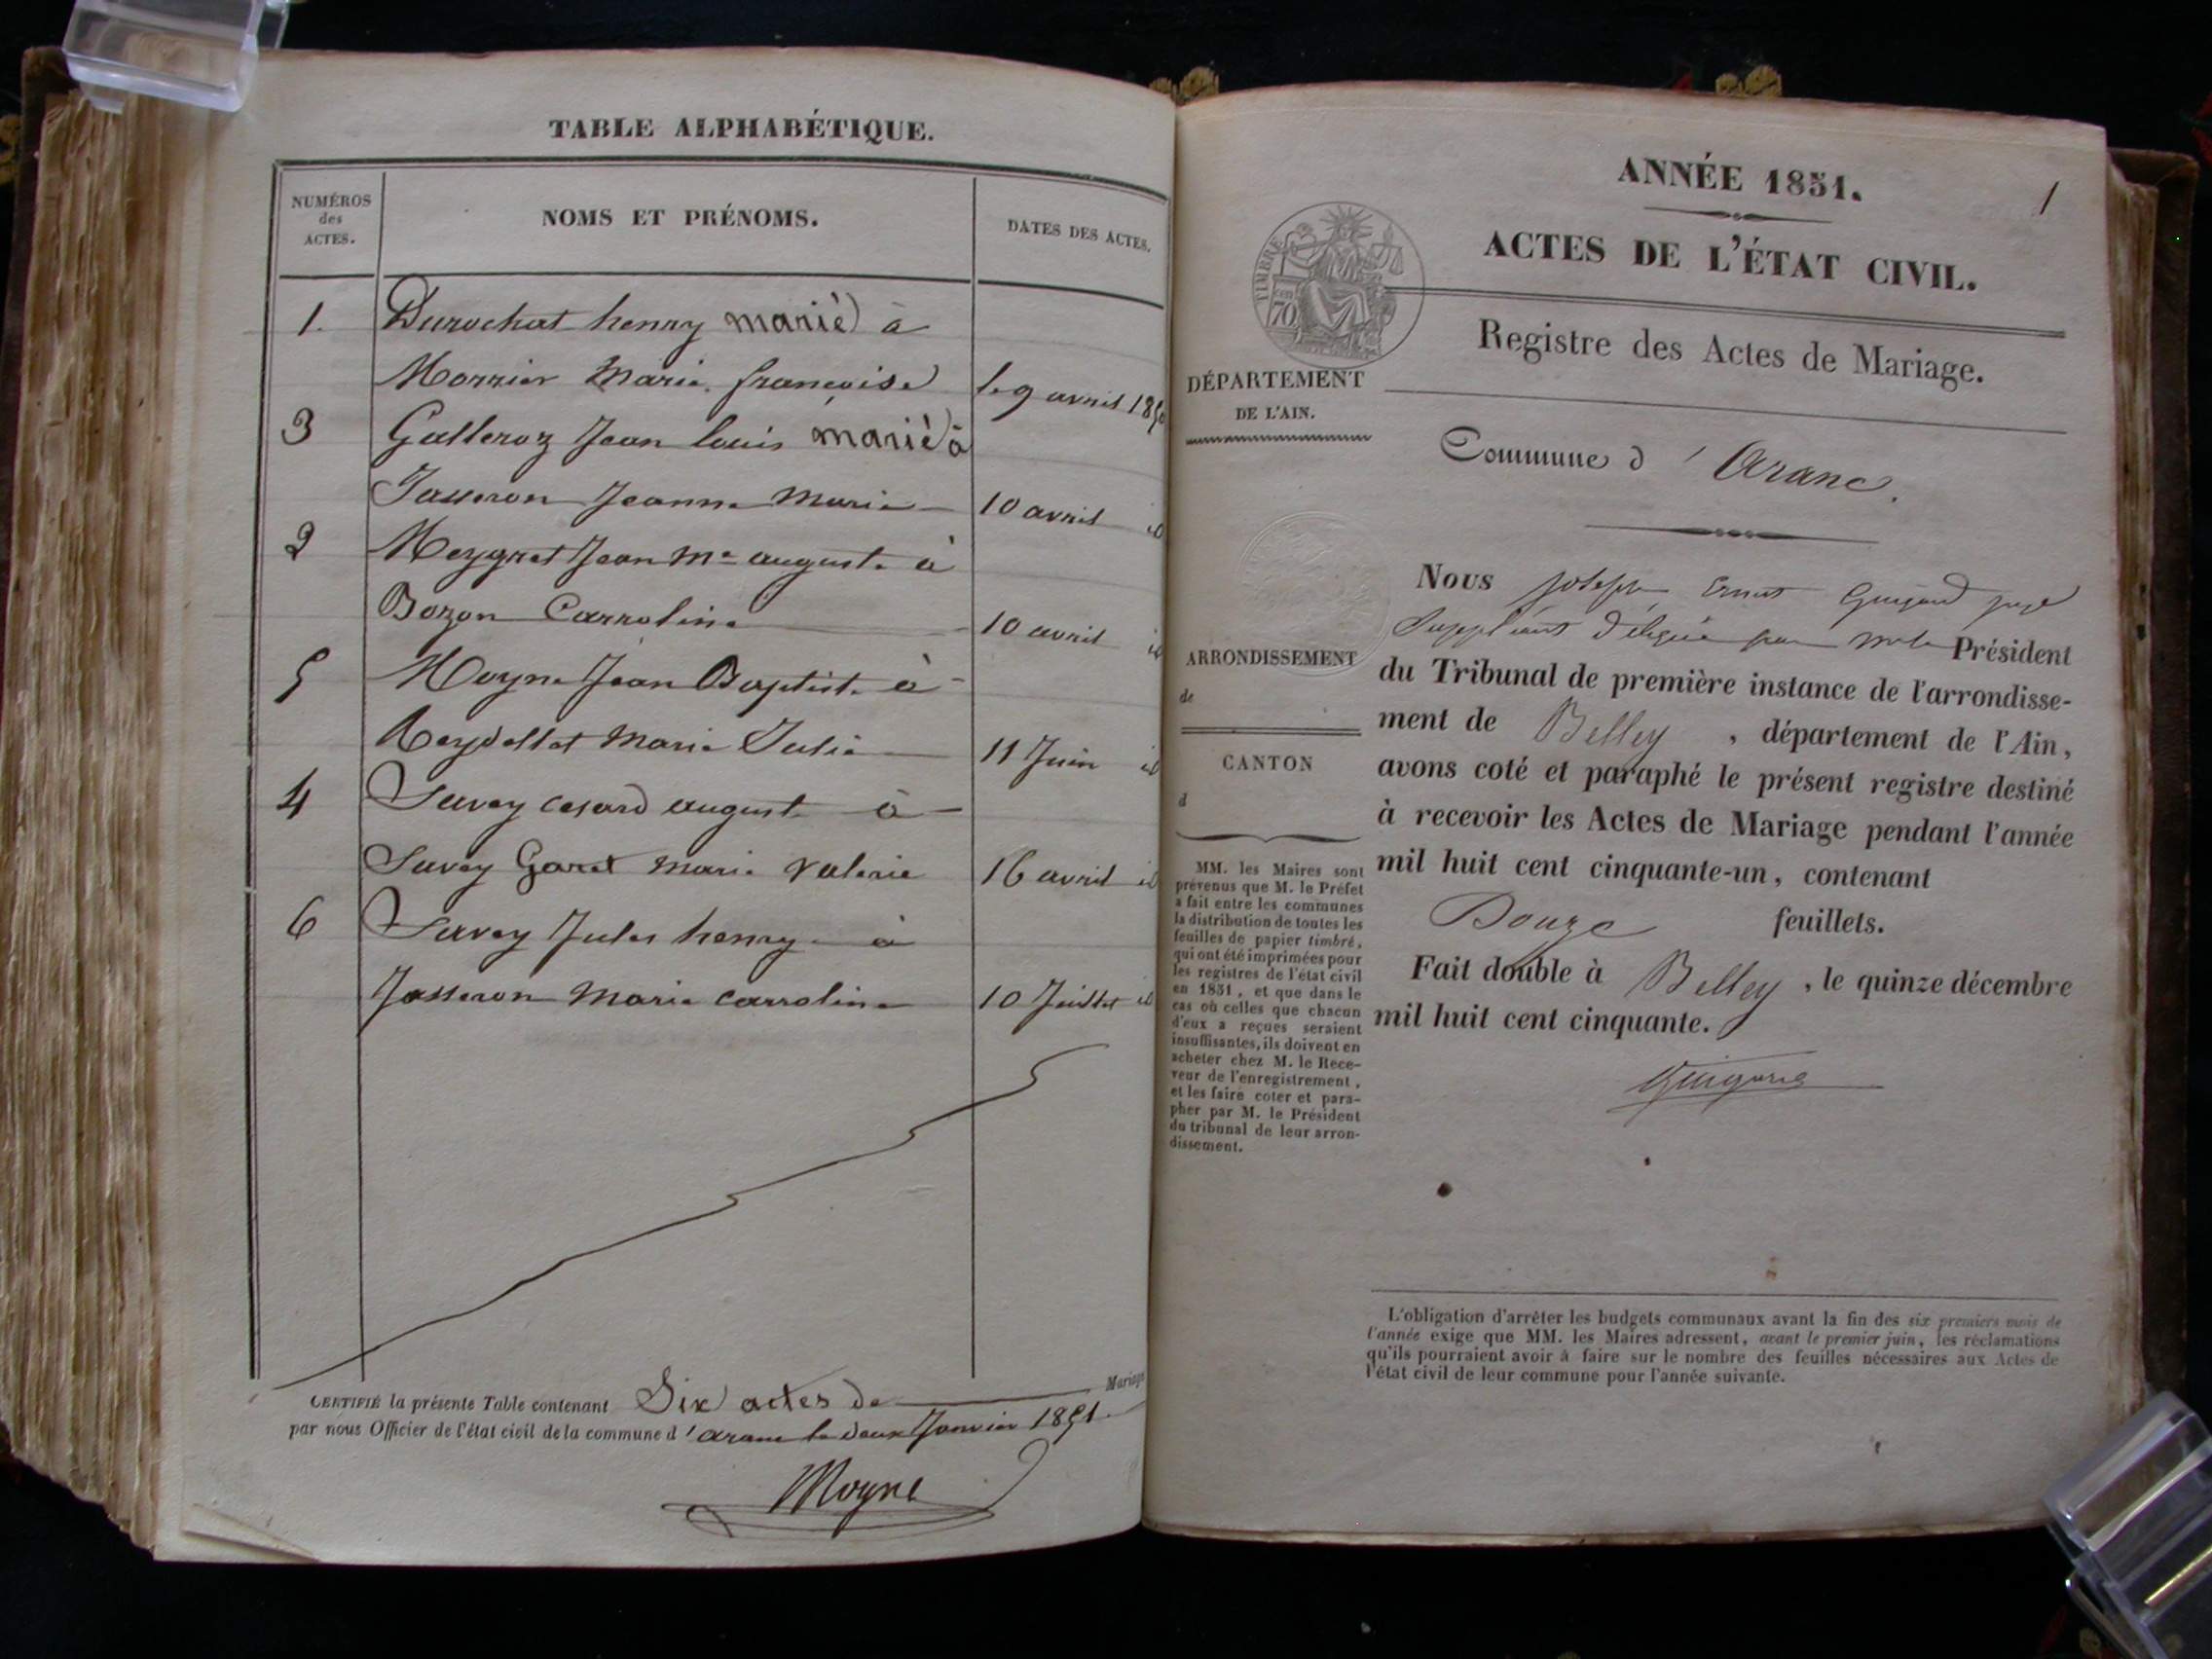 TABLE ALPHABÉTIQUE.
NUMÉROS
des
ACTES.
NOMS ET PRÉNOMS.
DATES DES ACTES.
1. Durochat henry marié à
Morrier Marie françoise le 9 avril 1850
3 Galleroz Jean louis marié à
Jasseron Jeanne Marie 10 avril id
2 Meygret Jean Me auguste à
Bozon Carroline 10 avril id
5 Moyne Jean Baptiste à
Reydellet Marie Julie 11 Juin id
4 Savey cesard auguste à
Savey Garet Marie Valerie 16 avril id
6 Savey Jules henry à
Jasseron Marie Carroline 10 Juillet id
CERTIFIÉ la présente Table contenant Six actes de Mariage
par nous Officier de l'état civil de la commune d'aranc le deux Janvier 1851.
Moyne
1
ANNÉE 1851.
ACTES DE L'ÉTAT CIVIL.
Registre des Actes de Mariage.
TIMBRE
70
DÉPARTEMENT
DE L'AIN.
Commune d'Aranc.
ARRONDISSEMENT
de
CANTON
d
MM. les Maires sont
prévenus que M. le Préfet
a fait entre les communes
la distribution de toutes les
feuilles de papier timbré,
qui ont été imprimées pour
les registres de l'état civil
en 1851, et que dans le
cas où celles que chacun
d'eux a reçues seraient
insuffisantes, ils doivent en
acheter chez M. le Rece-
veur de l'enregistrement,
et les faire coter et para-
pher par M. le Président
du tribunal de leur arron-
dissement.
Nous Joseph Ernest Guigard juge
Suppléant délégué par Mr le Président
du Tribunal de première instance de l'arrondisse-
ment de Belley, département de l'Ain,
avons coté et paraphé le présent registre destiné
à recevoir les Actes de Mariage pendant l'année
mil huit cent cinquante-un, contenant
Douze feuillets.
Fait double à Belley, le quinze décembre
mil huit cent cinquante.
Guigard
L'obligation d'arrêter les budgets communaux avant la fin des six premiers mois de
l'année exige que MM. les Maires adressent, avant le premier juin, les réclamations
qu'ils pourraient avoir à faire sur le nombre des feuilles nécessaires aux Actes de
l'état civil de leur commune pour l'année suivante.